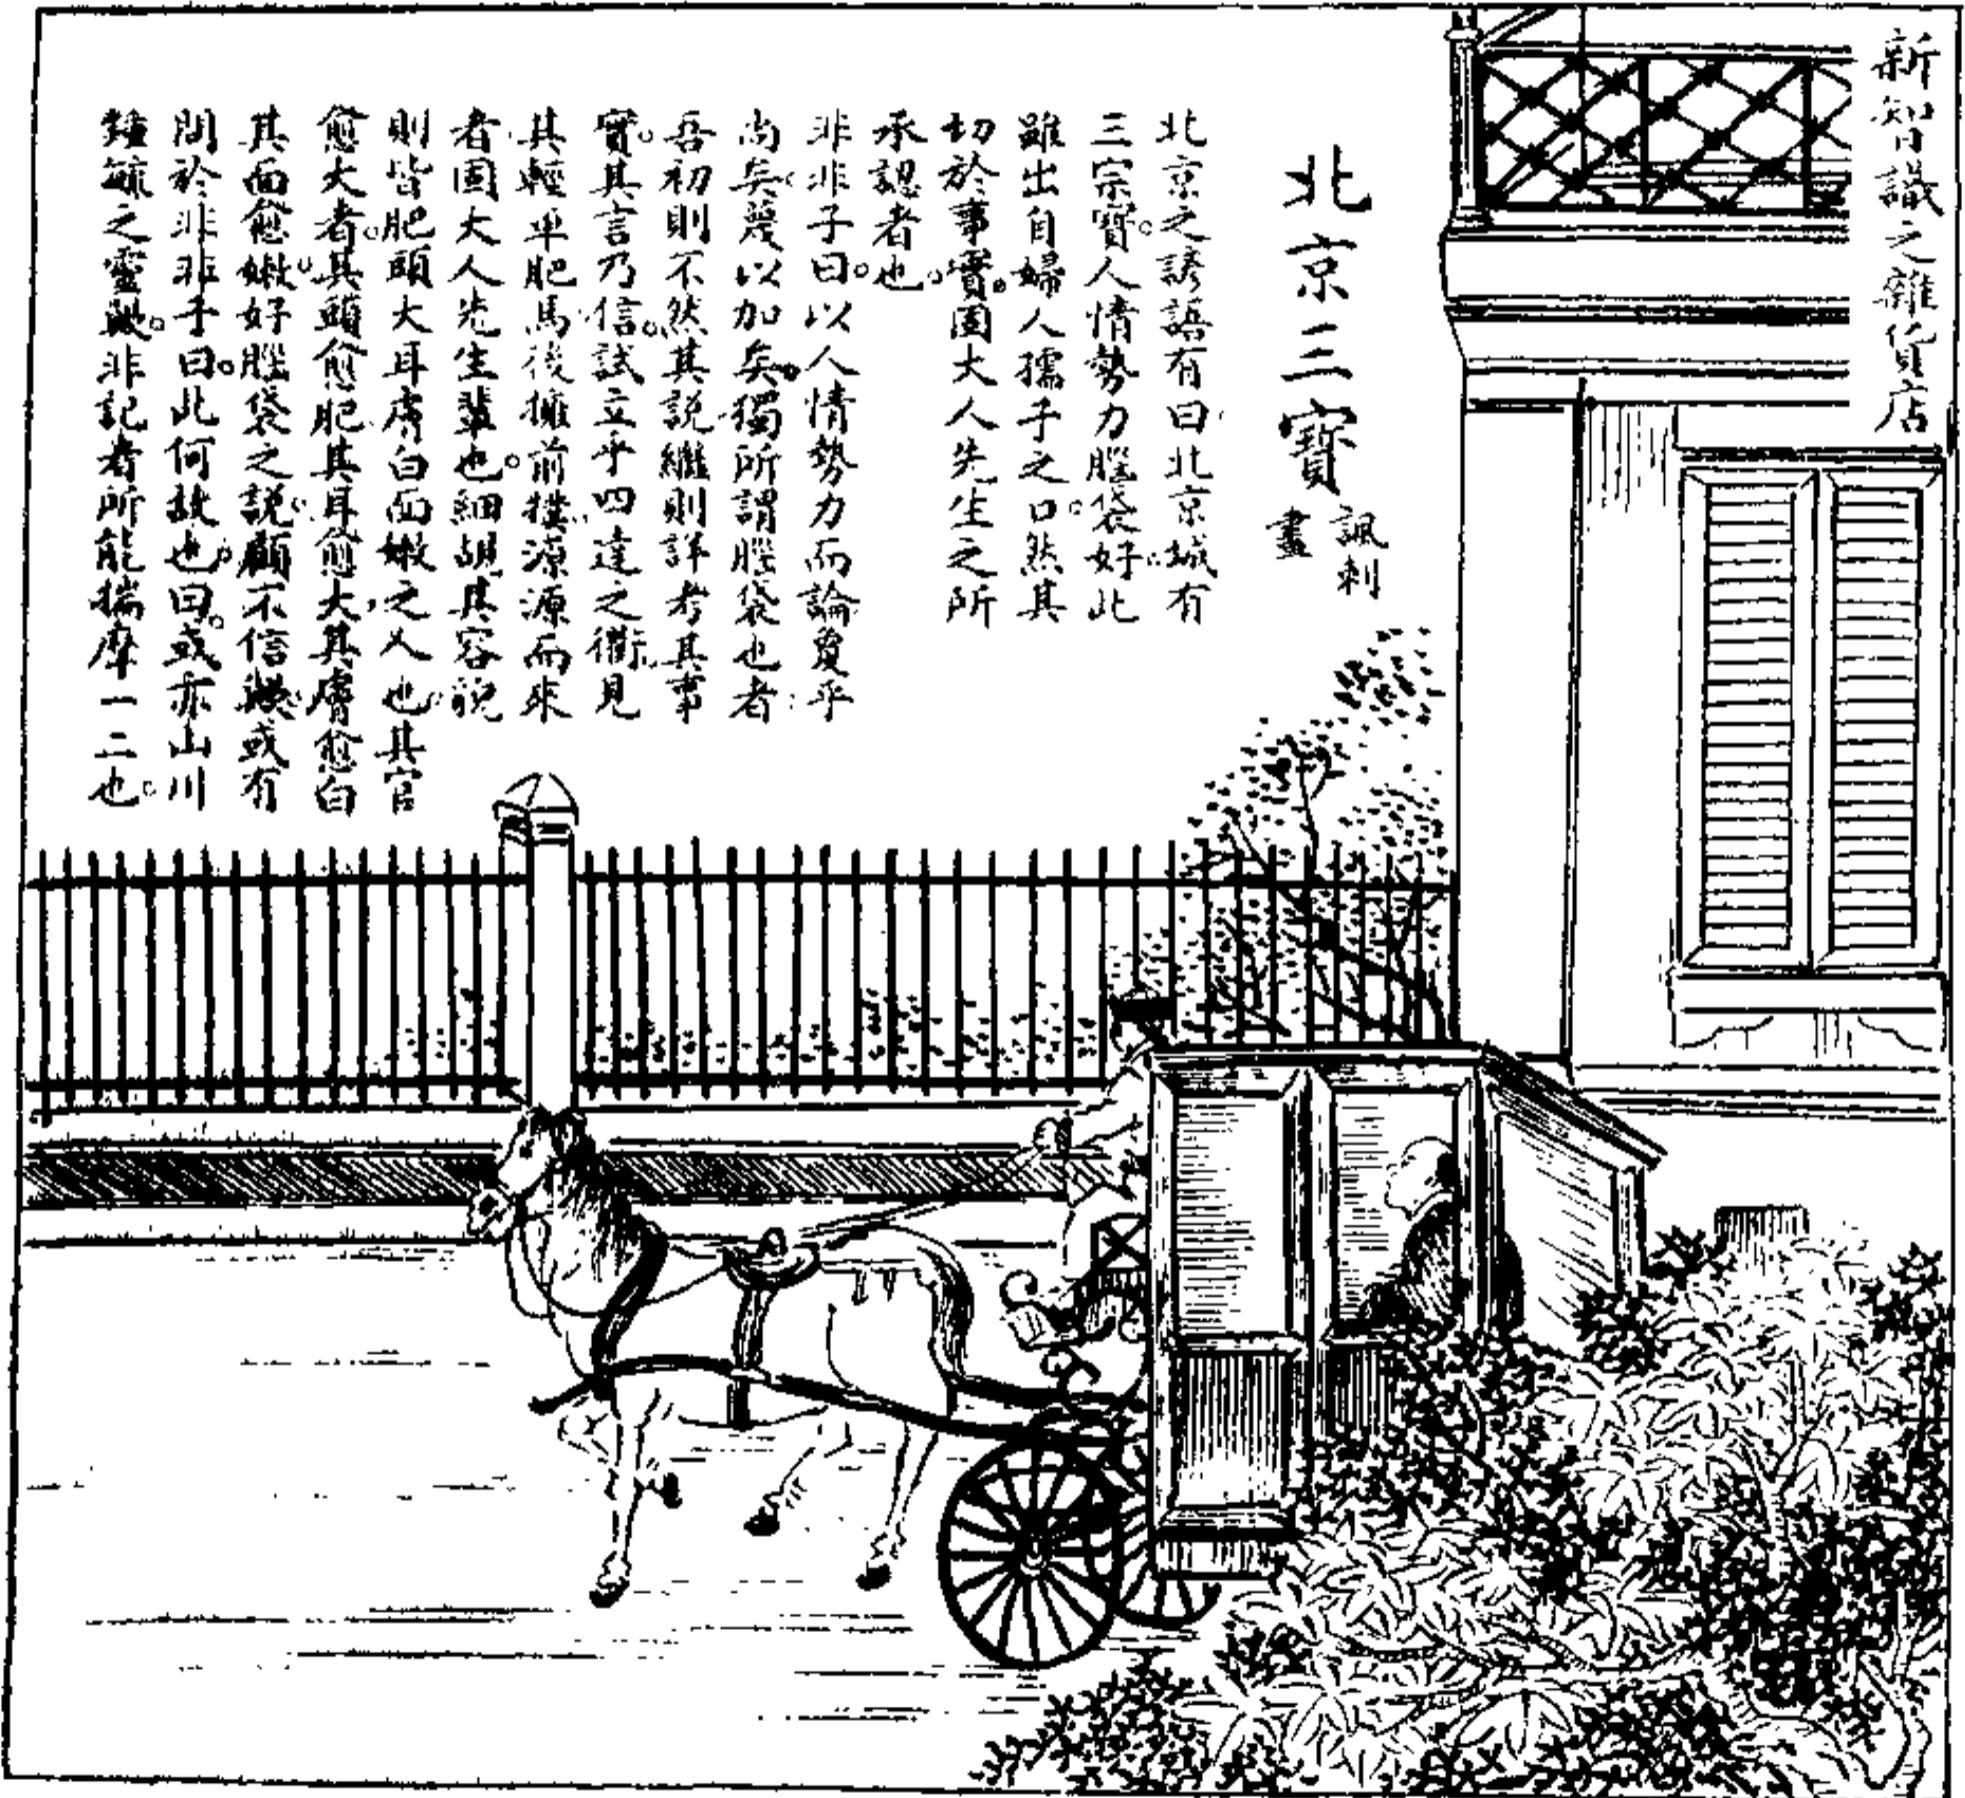 新智識之雜貨店
北京三寶
諷刺
畫
北京之諺語有曰北京城有
三宗寶。人情勢力腦袋好此
雖出自婦人孺子之口。然其
切於事實。固大人先生之所
承認者也。
非非子曰。以人情勢力而論夐乎
尚矣蔑以加矣。獨所謂腦袋也者
吾初則不然其說繼則詳考其事
實。其言乃信。試立乎四達之衢見
其輕車肥馬後擁前撲源源而來
者固大人先生輩也。細覘其容貌
則皆肥頭大耳膚白面嫩之人也。其官
愈大者。其頭愈肥其耳愈大其膚愈白
其面愈嫩。好腦袋之說。顧不信歟。或有
問於非非子曰。此何故也。曰。或亦山川
鍾毓之靈歟。非記者所能揣摩一二也。